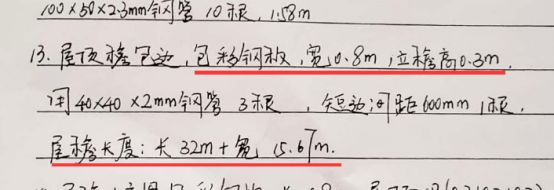 100×50×2.3mm钢管 10根，1.58m
13. 屋顶檐包边，包彩钢板，宽0.8m，立檐高0.3m，
用40×40×2mm钢管 3根，短边间距600mm 1根，
屋檐长度：长32m+宽15.67m.